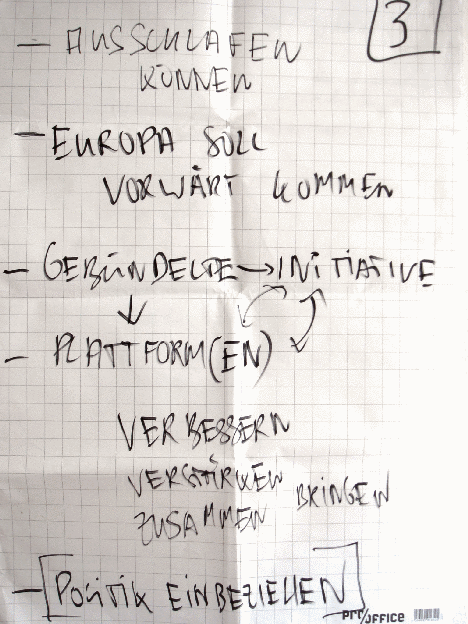 3
– AUSSCHLAFEN
KÖNNEN
– EUROPA SOLL
VORWÄRT KOMMEN
– GEBÜNDELTE → INITIATIVE
– PLATTFORM(EN)
VERBESSERN
VERSTÄRKEN
ZUSAMMEN BRINGEN
– [POLITIK EINBEZIEHEN]